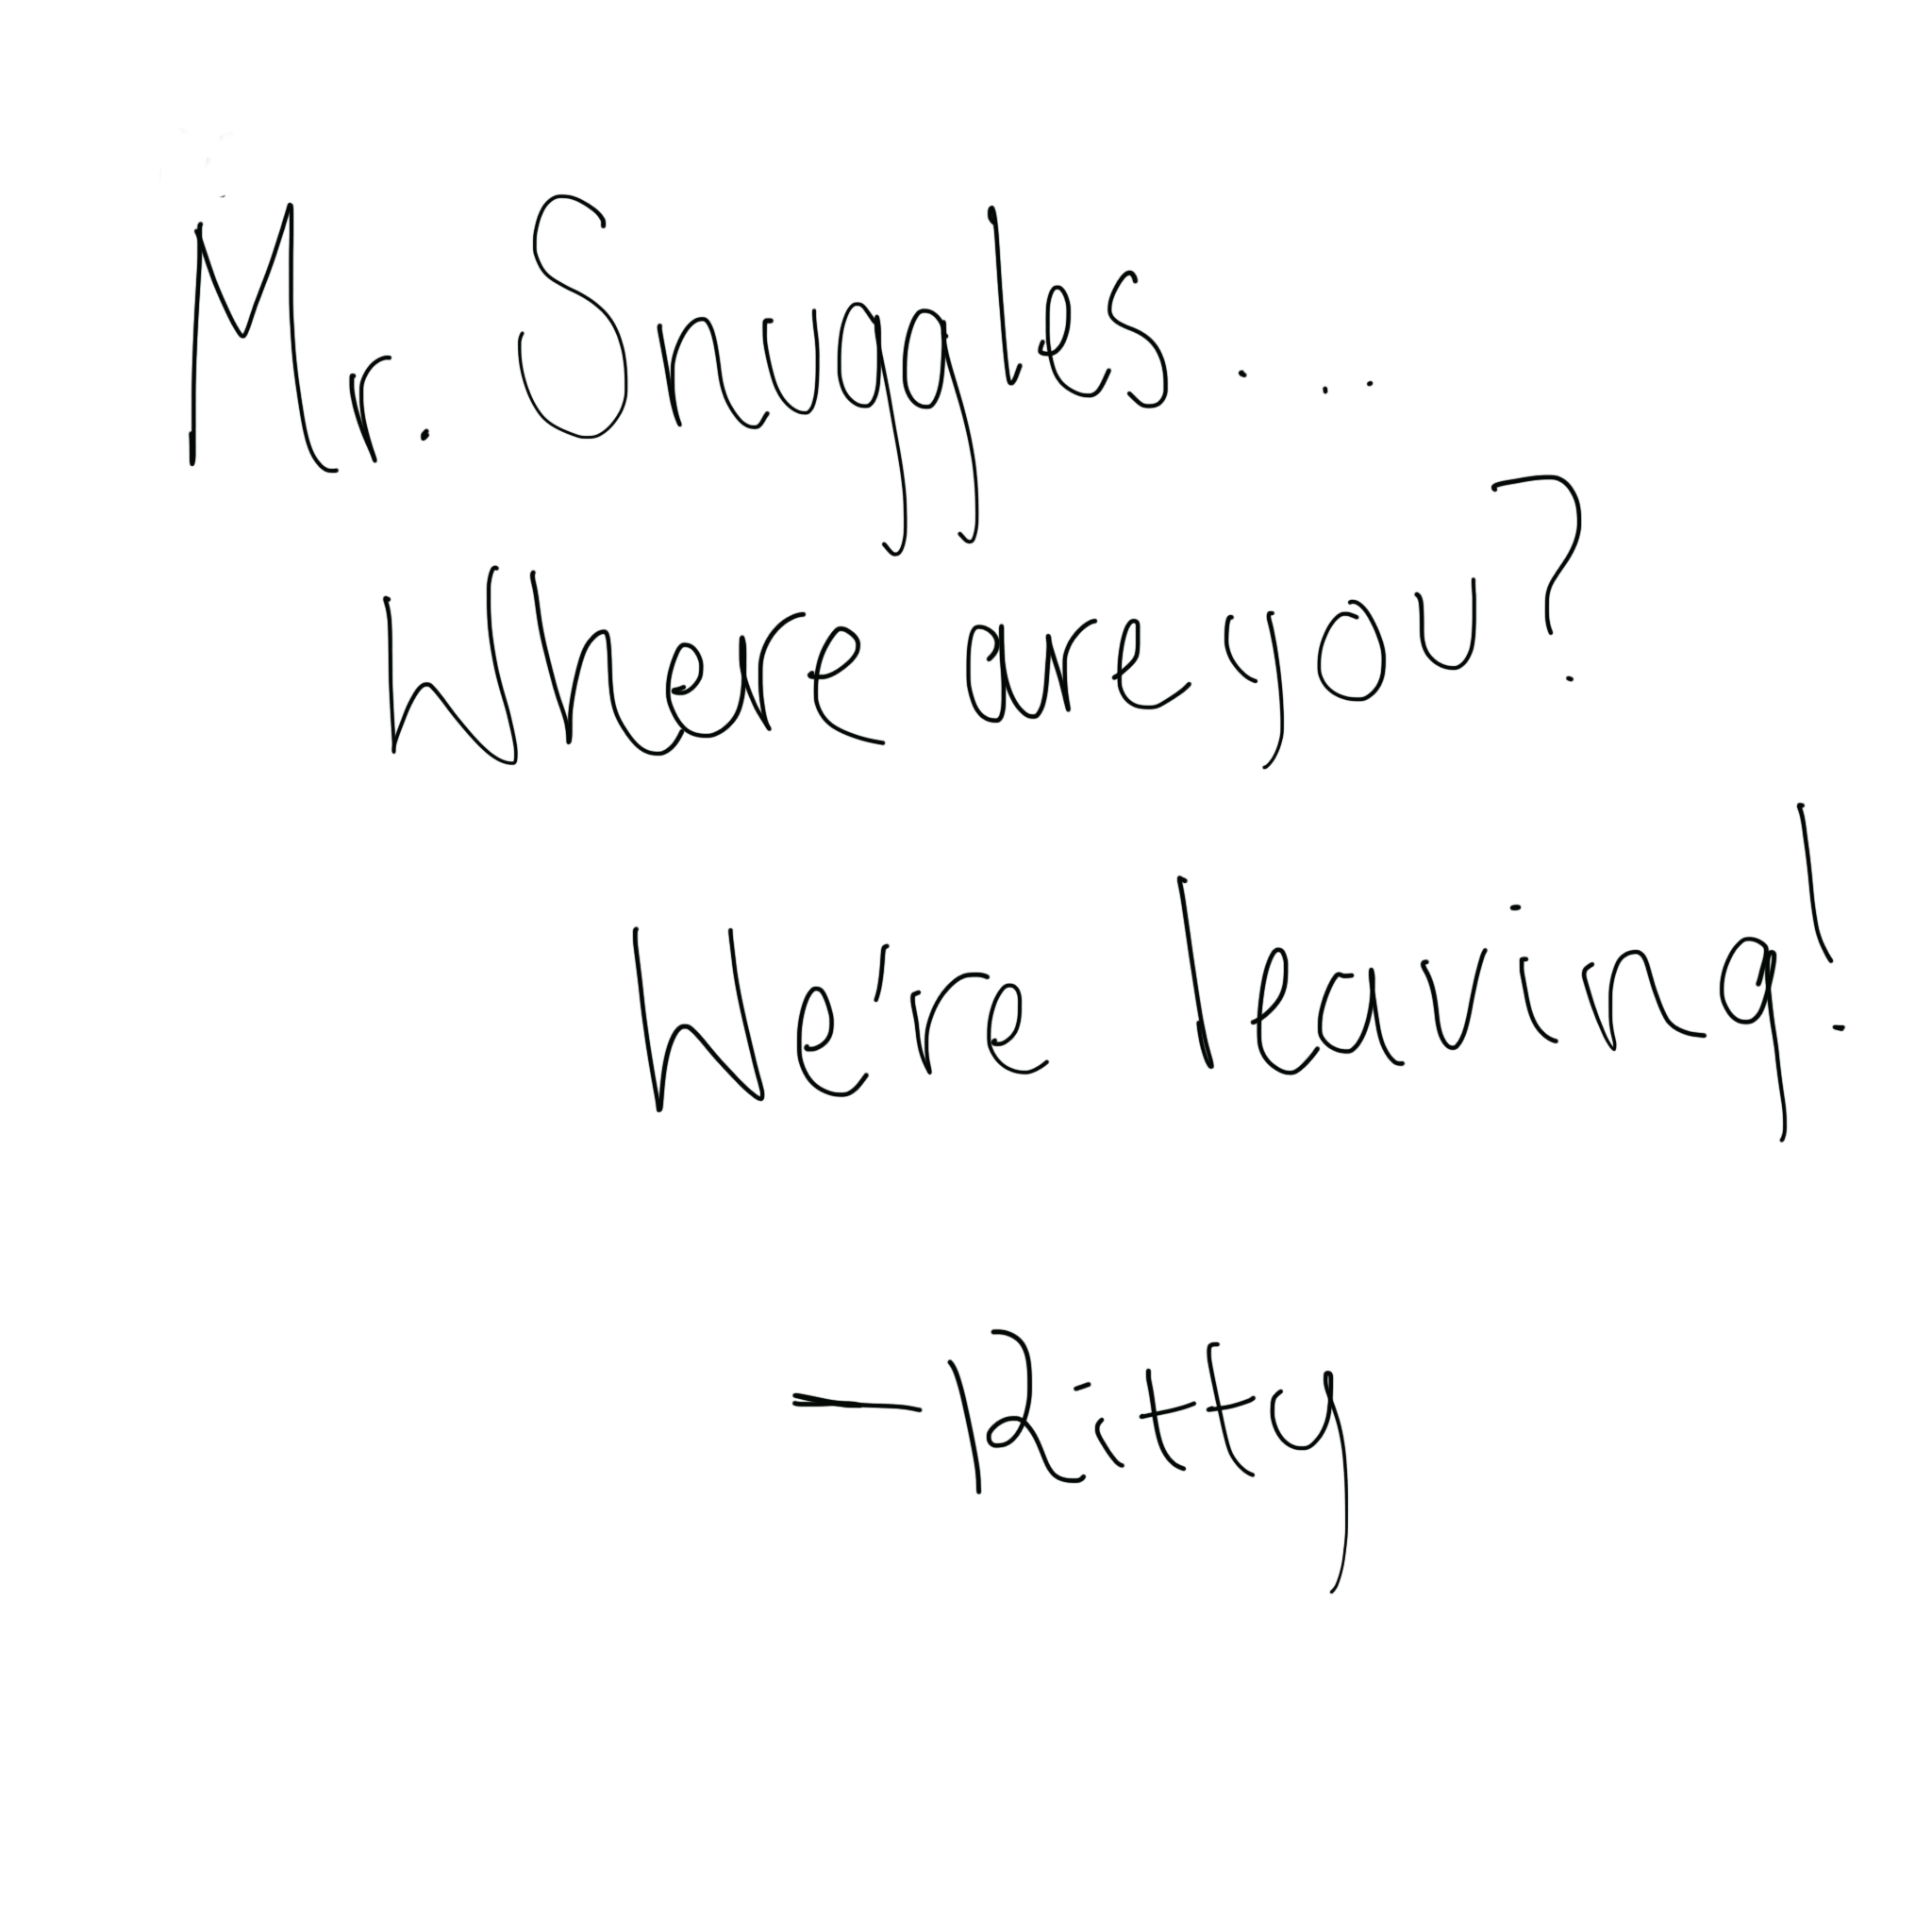 Mr. Snuggles...
Where are you?
We're leaving!
-Kitty